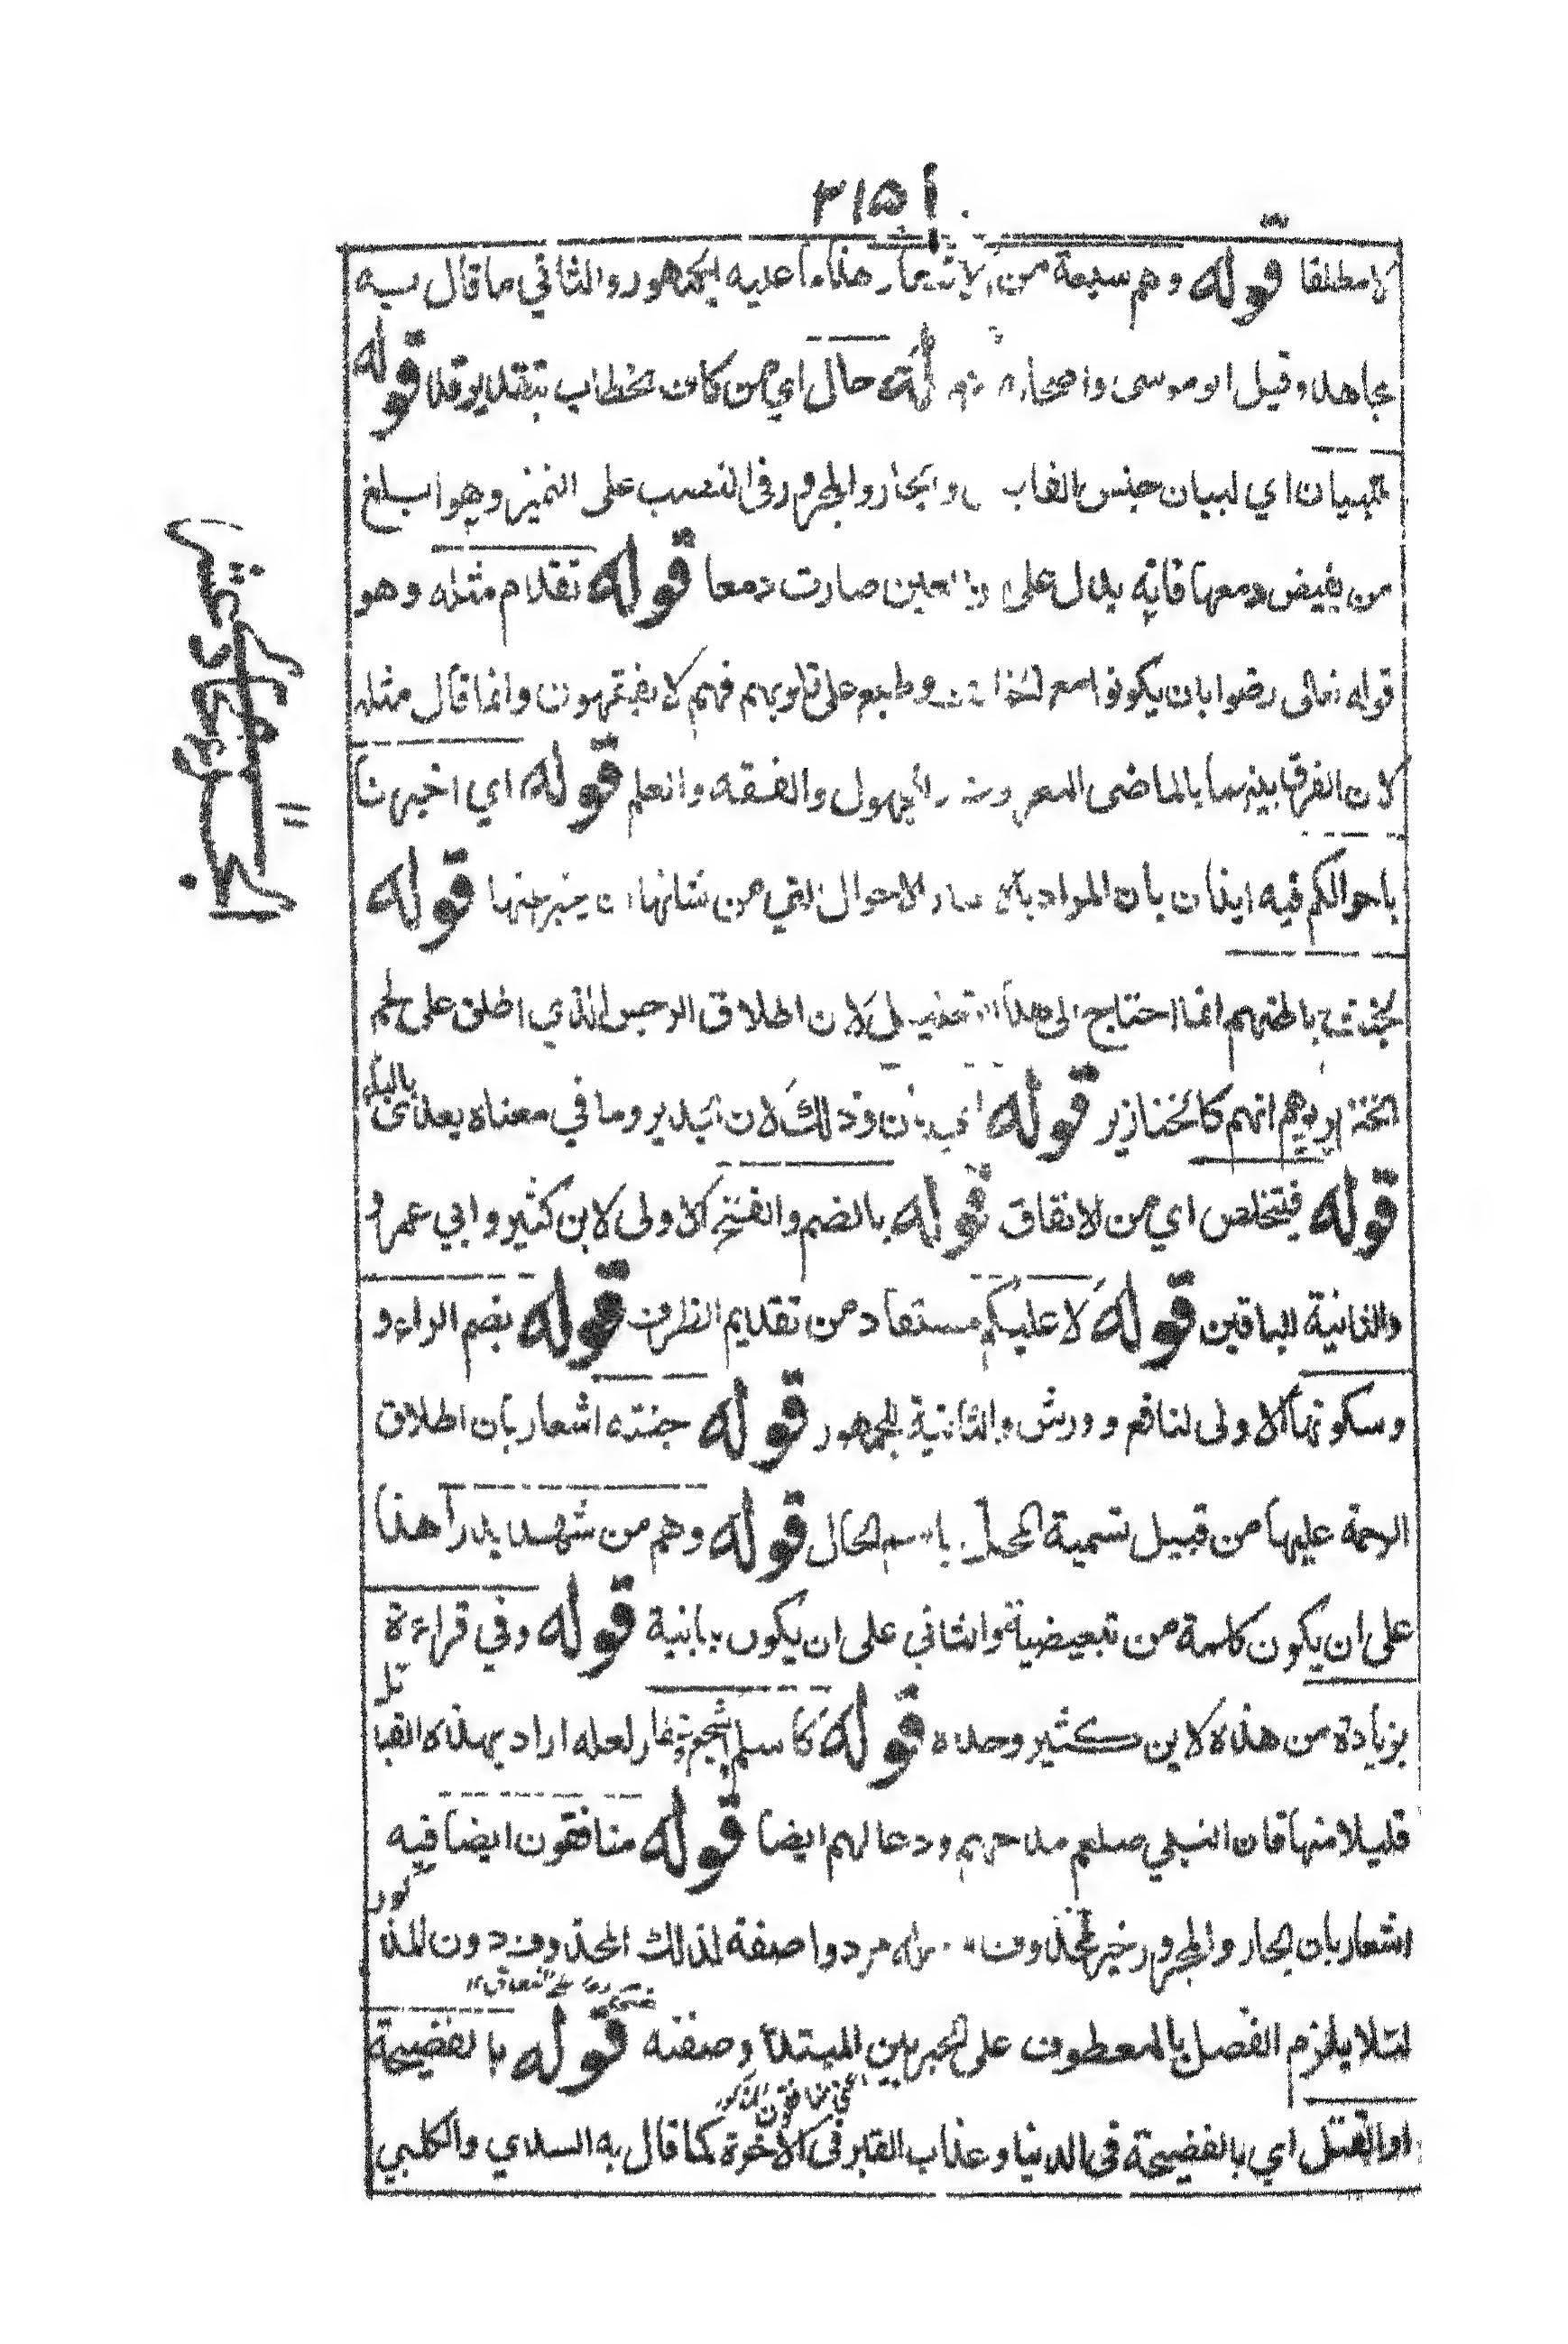 ٣١٥
لا مطلقا قوله وهم سبعة من الانصار هذا ما عليه الجمهور والثاني ما قال به
مجاهد وقيل ابو موسى واصحابه قوله حال اي من كاف الخطاب بتقدير قد قوله
للبيان اي لبيان جنس الفايض والجار والمجرور في النصب على التميز وهو ابلغ
من يفيض دمعها فانه يدل على ان العين صارت دمعا قوله تقدم مثله وهو
قوله تعالى رضوا بان يكونوا مع الخوالف وطبع على قلوبهم فهم لا يفقهون وانما قال مثله
لان الفرق بينهما بالماضى المعروف والمجهول والفقه والعلم قوله اي اخبرنا
باحوالكم فيه ايذان بان المراد بالاخبار الاحوال التي من شانها ان يخبر عنها قوله
لخبث باطنهم انما احتاج الى هذا التعليل لان اطلاق الرجس الذي اطلق على لحم
الخنزير يوهم انهم كالخنازير قوله اي بان وذلك لان الجدير وما في معناه يعدى بالباء
قوله فيتخلص اي من الانفاق قوله بالضم والفتح الاولى لابن كثير وابي عمرو
والثانية للباقين قوله لا عليكم مستفاد من تقديم الظرف قوله بضم الراء و
وسكونها الاولى لنافع وورش والثانية للجمهور قوله جنته اشعار بان اطلاق
الرحمة عليها من قبيل تسمية المحل باسم الحال قوله وهم من شهد بدرا هذا
على ان يكون كلمة من تبعيضية والثاني على ان يكون بيانية قوله وفي قراءة
بزيادة من هذه لابن كثير وحده قوله كاسلم اشجع وغفار لعله اراد بهذه القبائل
قليلا منها فان النبي صلعم مدحهم ودعا لهم ايضا قوله منافقون ايضا فيه
اشعار بان الجار والمجرور خبر لمحذوف قوله مردوا صفة لذلك المحذوف دون المذكور
لئلا يلزم الفصل بالمعطوف على الخبر بين المبتدأ وصفته قوله بالفضيحة
او القتل اي بالفضيحة في الدنيا وعذاب القبر في الاخرة كما قال به السدي والكلبي